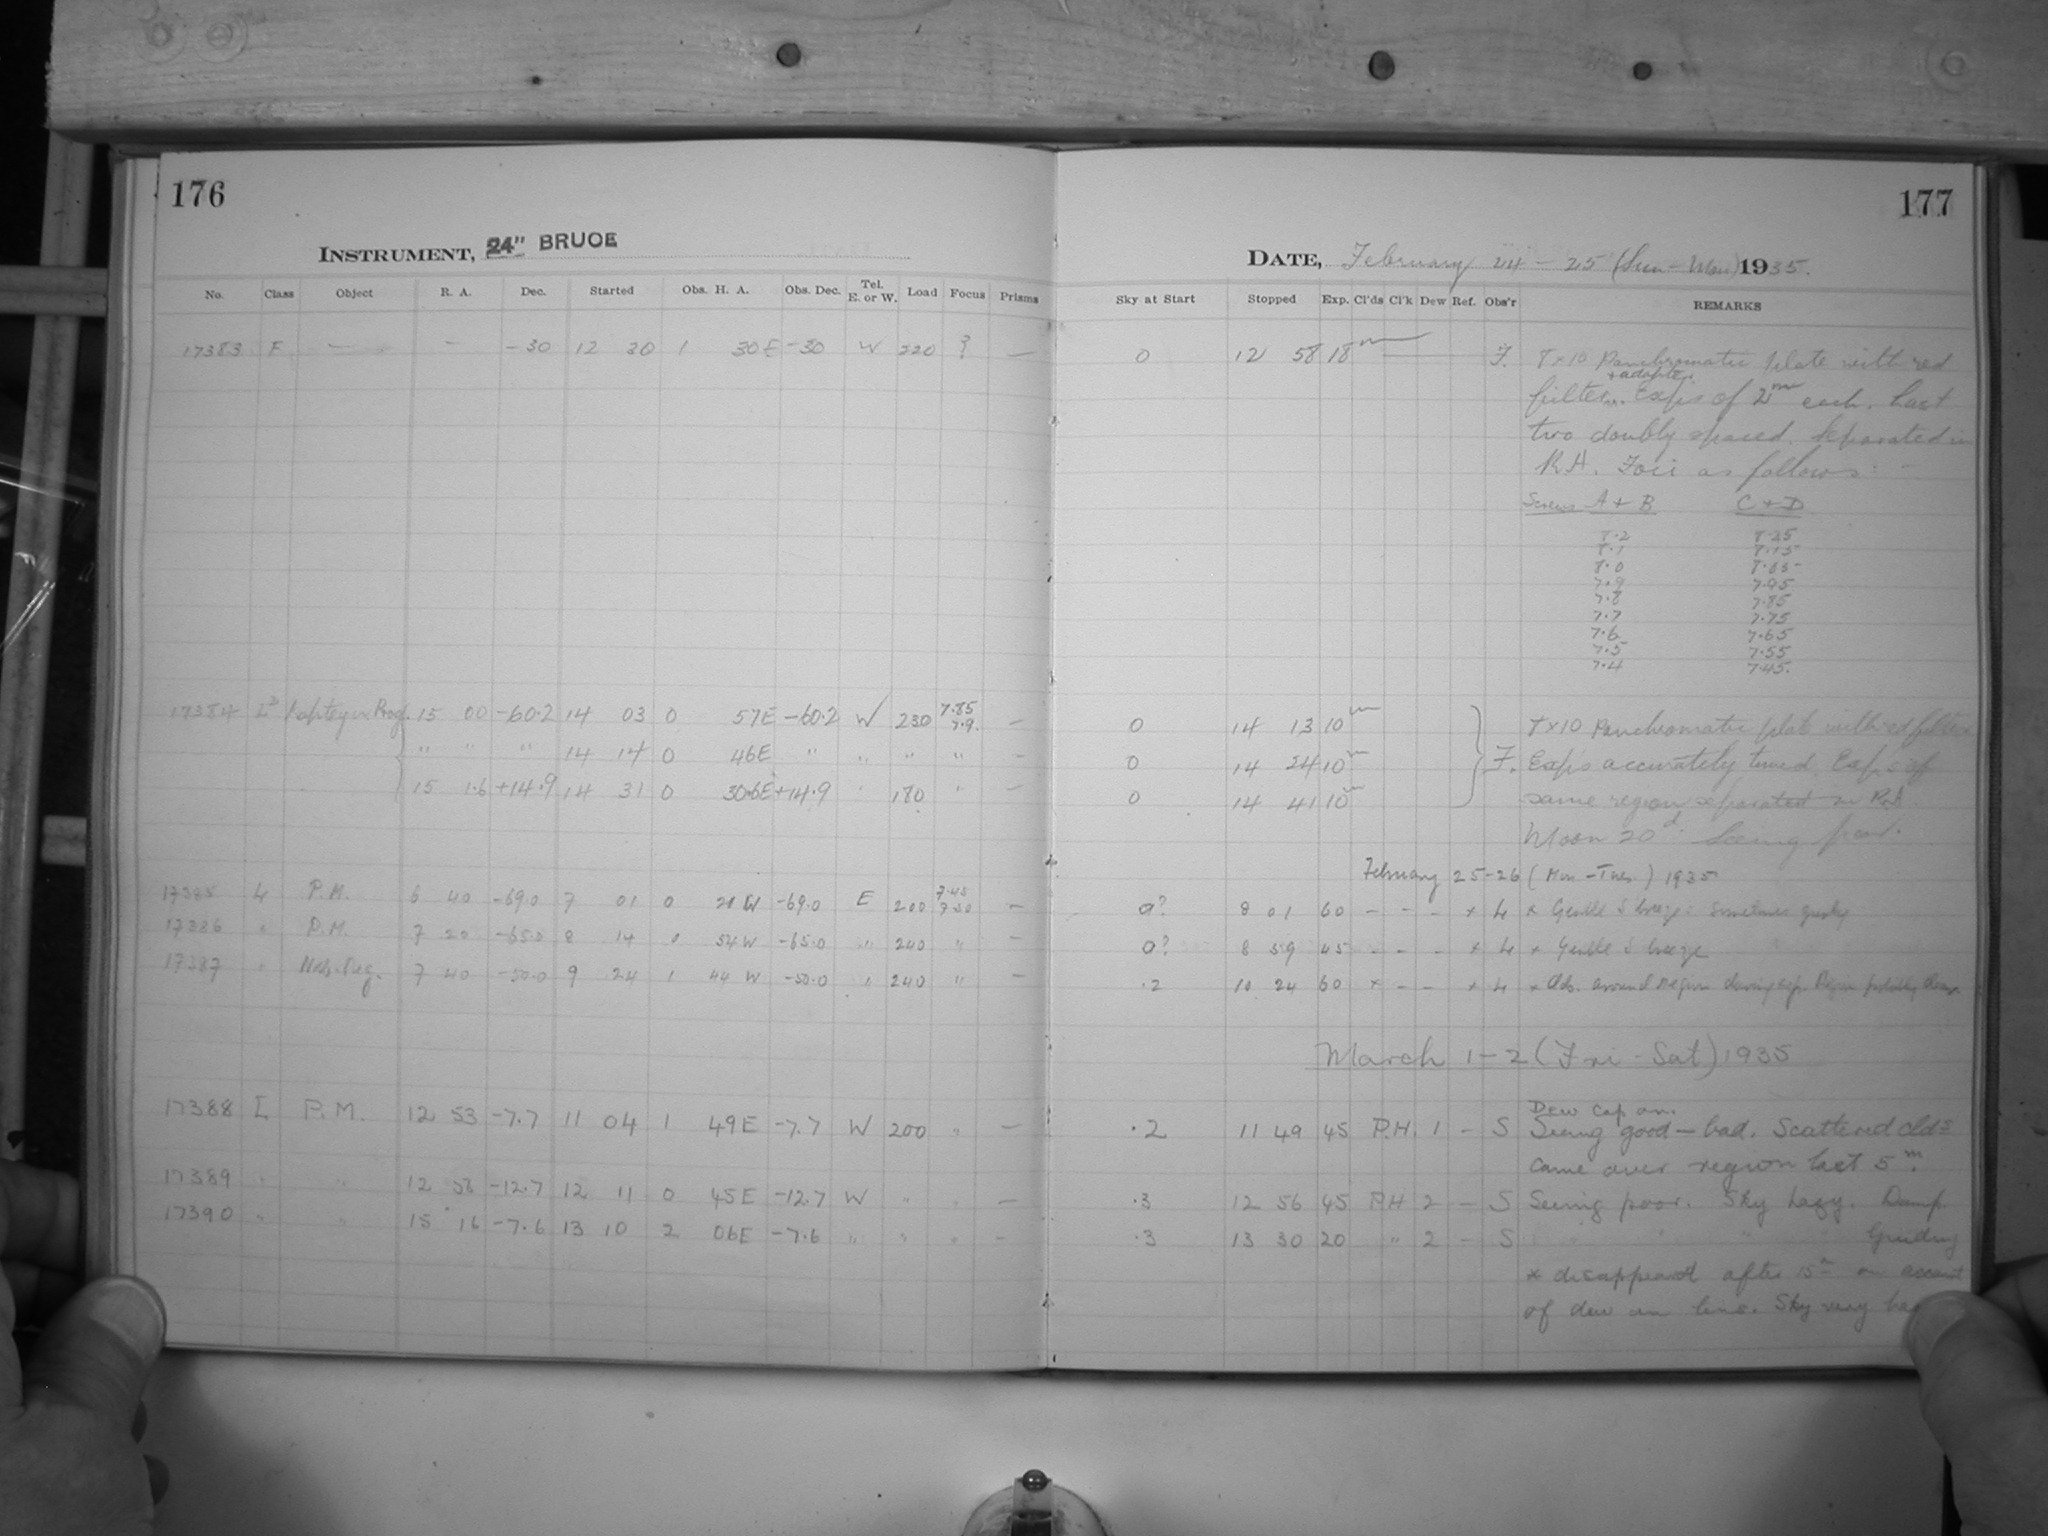 176
INSTRUMENT, 24" BRUCE
No. Class Object R. A. Dec. Started Obs. H. A. Obs. Dec. Tel. E. or W. Load Focus Prisms
17383 F — - -30 12 30 1 30E -30 W 220 ? —
17384 L² Kapteyn Prog. 15 00 -60.2 14 03 0 57E -60.2 W 230 7.85 7.9 —
" " " 14 14 0 46E " " " " -
15 1.6 +14.9 14 31 0 30.6E +14.9 " 180 " -
17385 L P.M. 6 40 -69.0 7 01 0 21 W -69.0 E 200 7.45 7.50 —
17386 " P.M. 7 20 -65.0 8 14 0 54 W -65.0 " 240 " —
17387 " 7 40 -50.0 9 24 1 44 W -50.0 " 240 " —
17388 L P.M. 12 53 -7.7 11 04 1 49E -7.7 W 200 " —
17389 " " 12 56 -12.7 12 11 0 45E -12.7 W " " —
17390 " " 15 16 -7.6 13 10 2 06E -7.6 " " " —
177
DATE, February 24 - 25 (Sun - Mon) 1935.
Sky at Start Stopped Exp. Cl'ds Cl'k Dew Ref. Obs'r REMARKS
0 12 58 18m — F. 8x10 Panchromatic plate with red
+ adapter
filter. Exp's of 2m each. Last
two doubly spaced. Separated in
R.A. Foci as follows: -
Screws A + B C + D
8.2 8.25
8.1 8.15
8.0 8.05
7.9 7.95
7.8 7.85
7.7 7.75
7.6 7.65
7.5 7.55
7.4 7.45.
0 14 13 10m 8x10 Panchromatic plate with red filter
0 14 24 10m F. Exp's accurately timed. Exp's of
0 14 41 10m same region separated in R.A.
Moon 20d. Seeing poor.
February 25-26 (Mon - Tues.) 1935
0? 8 01 60 - - - * L * Gentle S breeze: Sometimes gusty
0? 8 59 45 - - - * L * Gentle S breeze
.2 10 24 60 * - - * L * Clds. around region during exp. Region probably clear
March 1-2 (Fri - Sat) 1935
Dew cap on.
.2 11 49 45 P.H. 1 - S Seeing good — bad. Scattered clds
came over region last 5m.
.3 12 56 45 P.H 2 - S Seeing poor. Sky hazy. Damp.
.3 13 30 20 " 2 - S " " " " Guiding
* disappeared after 15m on account
of dew on lens. Sky very